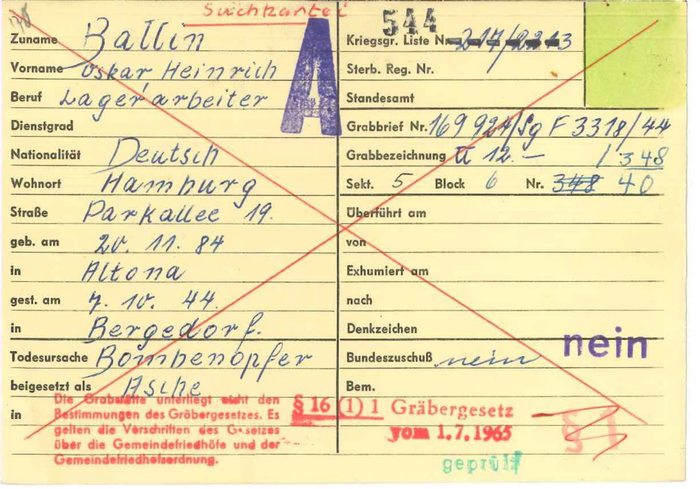 Suchkartei
544
Zuname Ballin
Vorname Oskar Heinrich
Beruf Lagerarbeiter
Dienstgrad
Nationalität Deutsch
Wohnort Hamburg
Straße Parkallee 19.
geb. am 20. 11. 84
in Altona
gest. am 7. 10. 44.
in Bergedorf.
Todesursache Bombenopfer
beigesetzt als Asche
in
Die Grabstätte unterliegt nicht den
Bestimmungen des Gräbergesetzes. Es
gelten die Vorschriften des Gesetzes
über die Gemeindefriedhöfe und der
Gemeindefriedhofsordnung.
A
Kriegsgr. Liste Nr. 217/2213
Sterb. Reg. Nr.
Standesamt
Grabbrief Nr. 169 924/Sg F 3318/44
Grabbezeichnung U 12.- / 348
Sekt. 5 Block 6 Nr. 348 40
Überführt am
von
Exhumiert am
nach
Denkzeichen
Bundeszuschuß nein nein
Bem.
§ 16 (1) 1 Gräbergesetz
vom 1.7.1965
§ 1
geprüft